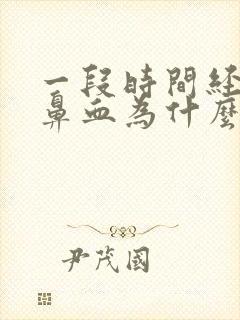 一段時間経
鼻血為什麼
尹茂國